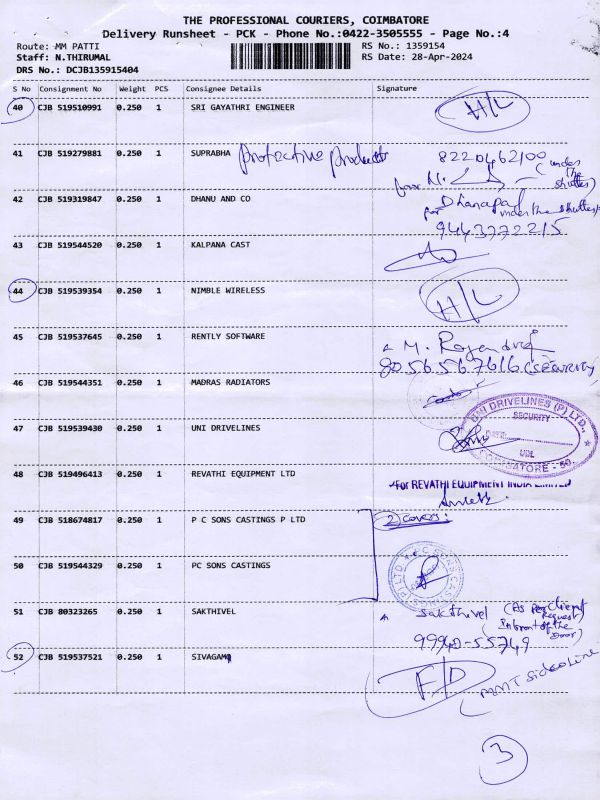 THE PROFESSIONAL COURIERS, COIMBATORE
Delivery Runsheet - PCK - Phone No.:0422-3505555 - Page No.:4
Route: MM PATTI
RS No.: 1359154
Staff: N.THIRUMAL
RS Date: 28-Apr-2024
DRS No.: DCJB135915404
S No Consignment No Weight PCS Consignee Details Signature
40 CJB 519510991 0.250 1 SRI GAYATHRI ENGINEER H/L
41 CJB 519279881 0.250 1 SUPRABHA protective product 8220462100 (under the shutter)
42 CJB 519319847 0.250 1 DHANU AND CO for Dhanapal under the shutter
9443772215
43 CJB 519544520 0.250 1 KALPANA CAST
44 CJB 519539354 0.250 1 NIMBLE WIRELESS H/L
45 CJB 519537645 0.250 1 RENTLY SOFTWARE M.
8056567616 (SECURITY)
46 CJB 519544351 0.250 1 MADRAS RADIATORS
47 CJB 519539430 0.250 1 UNI DRIVELINES UNI DRIVELINES (P) LTD., SECURITY UDL COIMBATORE - 50.
48 CJB 519496413 0.250 1 REVATHI EQUIPMENT LTD For REVATHI EQUIPMENT INDIA LIMITED
49 CJB 518674817 0.250 1 P C SONS CASTINGS P LTD 2) covers:
50 CJB 519544329 0.250 1 PC SONS CASTINGS
51 CJB 80323265 0.250 1 SAKTHIVEL Sakthivel (As per Client Request) (Infront of the Door)
9940-55749
52 CJB 519537521 0.250 1 SIVAGAMI F/D (MMT Sideoline
3